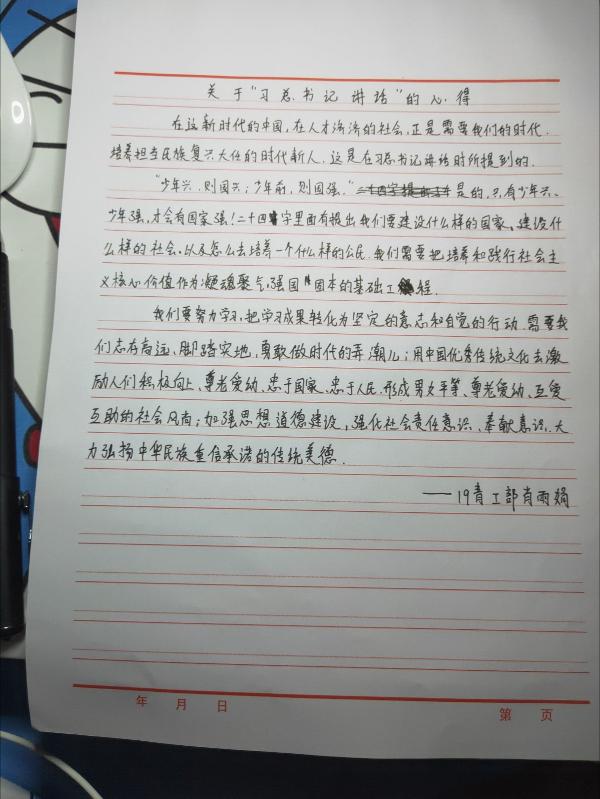 关于“习总书记讲话”的心得
在这新时代的中国,在人才济济的社会,正是需要我们的时代.
培养担当民族复兴大任的时代新人.这是在习总书记讲话时所提到的.
“少年兴,则国兴;少年强,则国强.”是的,只有少年兴、
少年强,才会有国家强!二十四字里面有提出我们要建设什么样的国家、建设什
么样的社会,以及怎么去培养一个什么样的公民.我们需要把培养和践行社会主
义核心价值作为凝魂聚气,强国固本的基础工程.
我们要努力学习,把学习成果转化为坚定的意志和自觉的行动.需要我
们志存高远、脚踏实地,勇敢做时代的弄潮儿;用中国优秀传统文化去激
励人们积极向上、尊老爱幼、忠于国家、忠于人民,形成男女平等、尊老爱幼、互爱
互助的社会风尚;加强思想道德建设,强化社会责任意识、奉献意识,大
力弘扬中华民族重信承诺的传统美德.
——19青工部肖雨娟
年 月 日
第 页